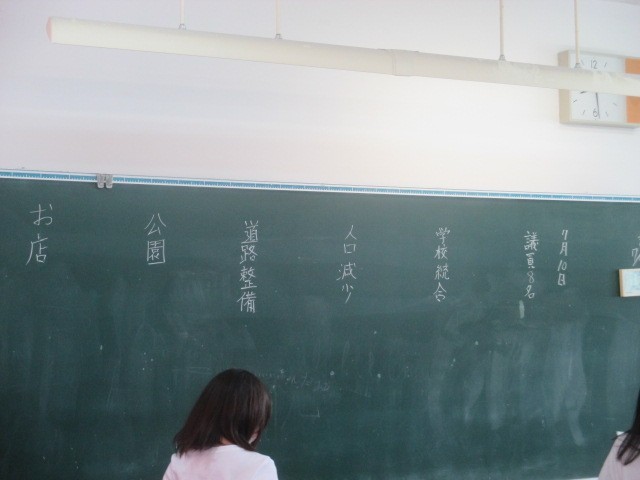 7月10日
議員8名
学校統合
人口減少
道路整備
公園
お店